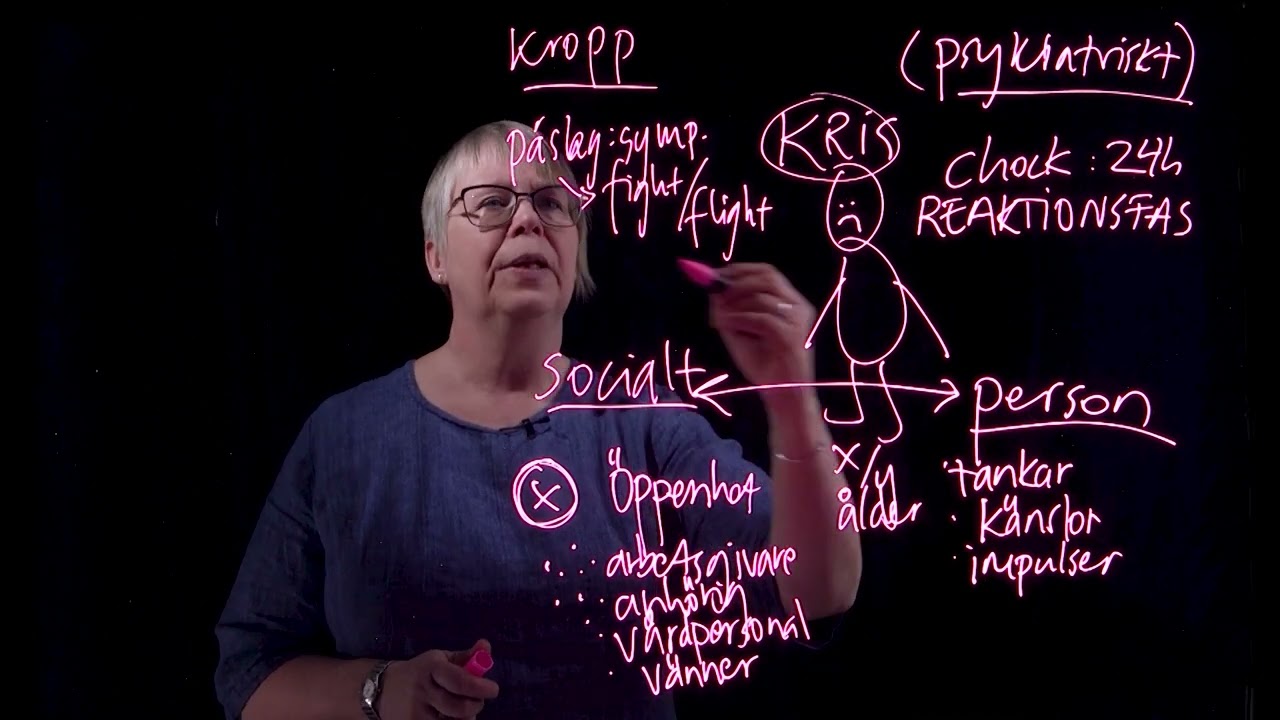 Kropp
påslag: symp.
fight/flight
(psykiatriskt)
KRIS
chock: 24h
REAKTIONSFAS
Socialt
person
x Öppenhet
· arbetsgivare
· anhörig
· vårdpersonal
· vänner
x/y
ålder
· tankar
· känslor
· impulser